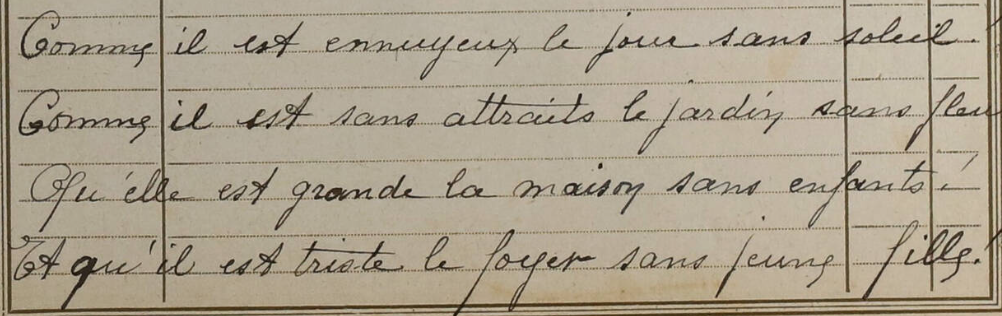 Comme il est ennuyeux le jour sans soleil!
Comme il est sans attraits le jardin sans fleu
Qu'elle est grande la maison sans enfants!
Et qu'il est triste le foyer sans jeune fille!